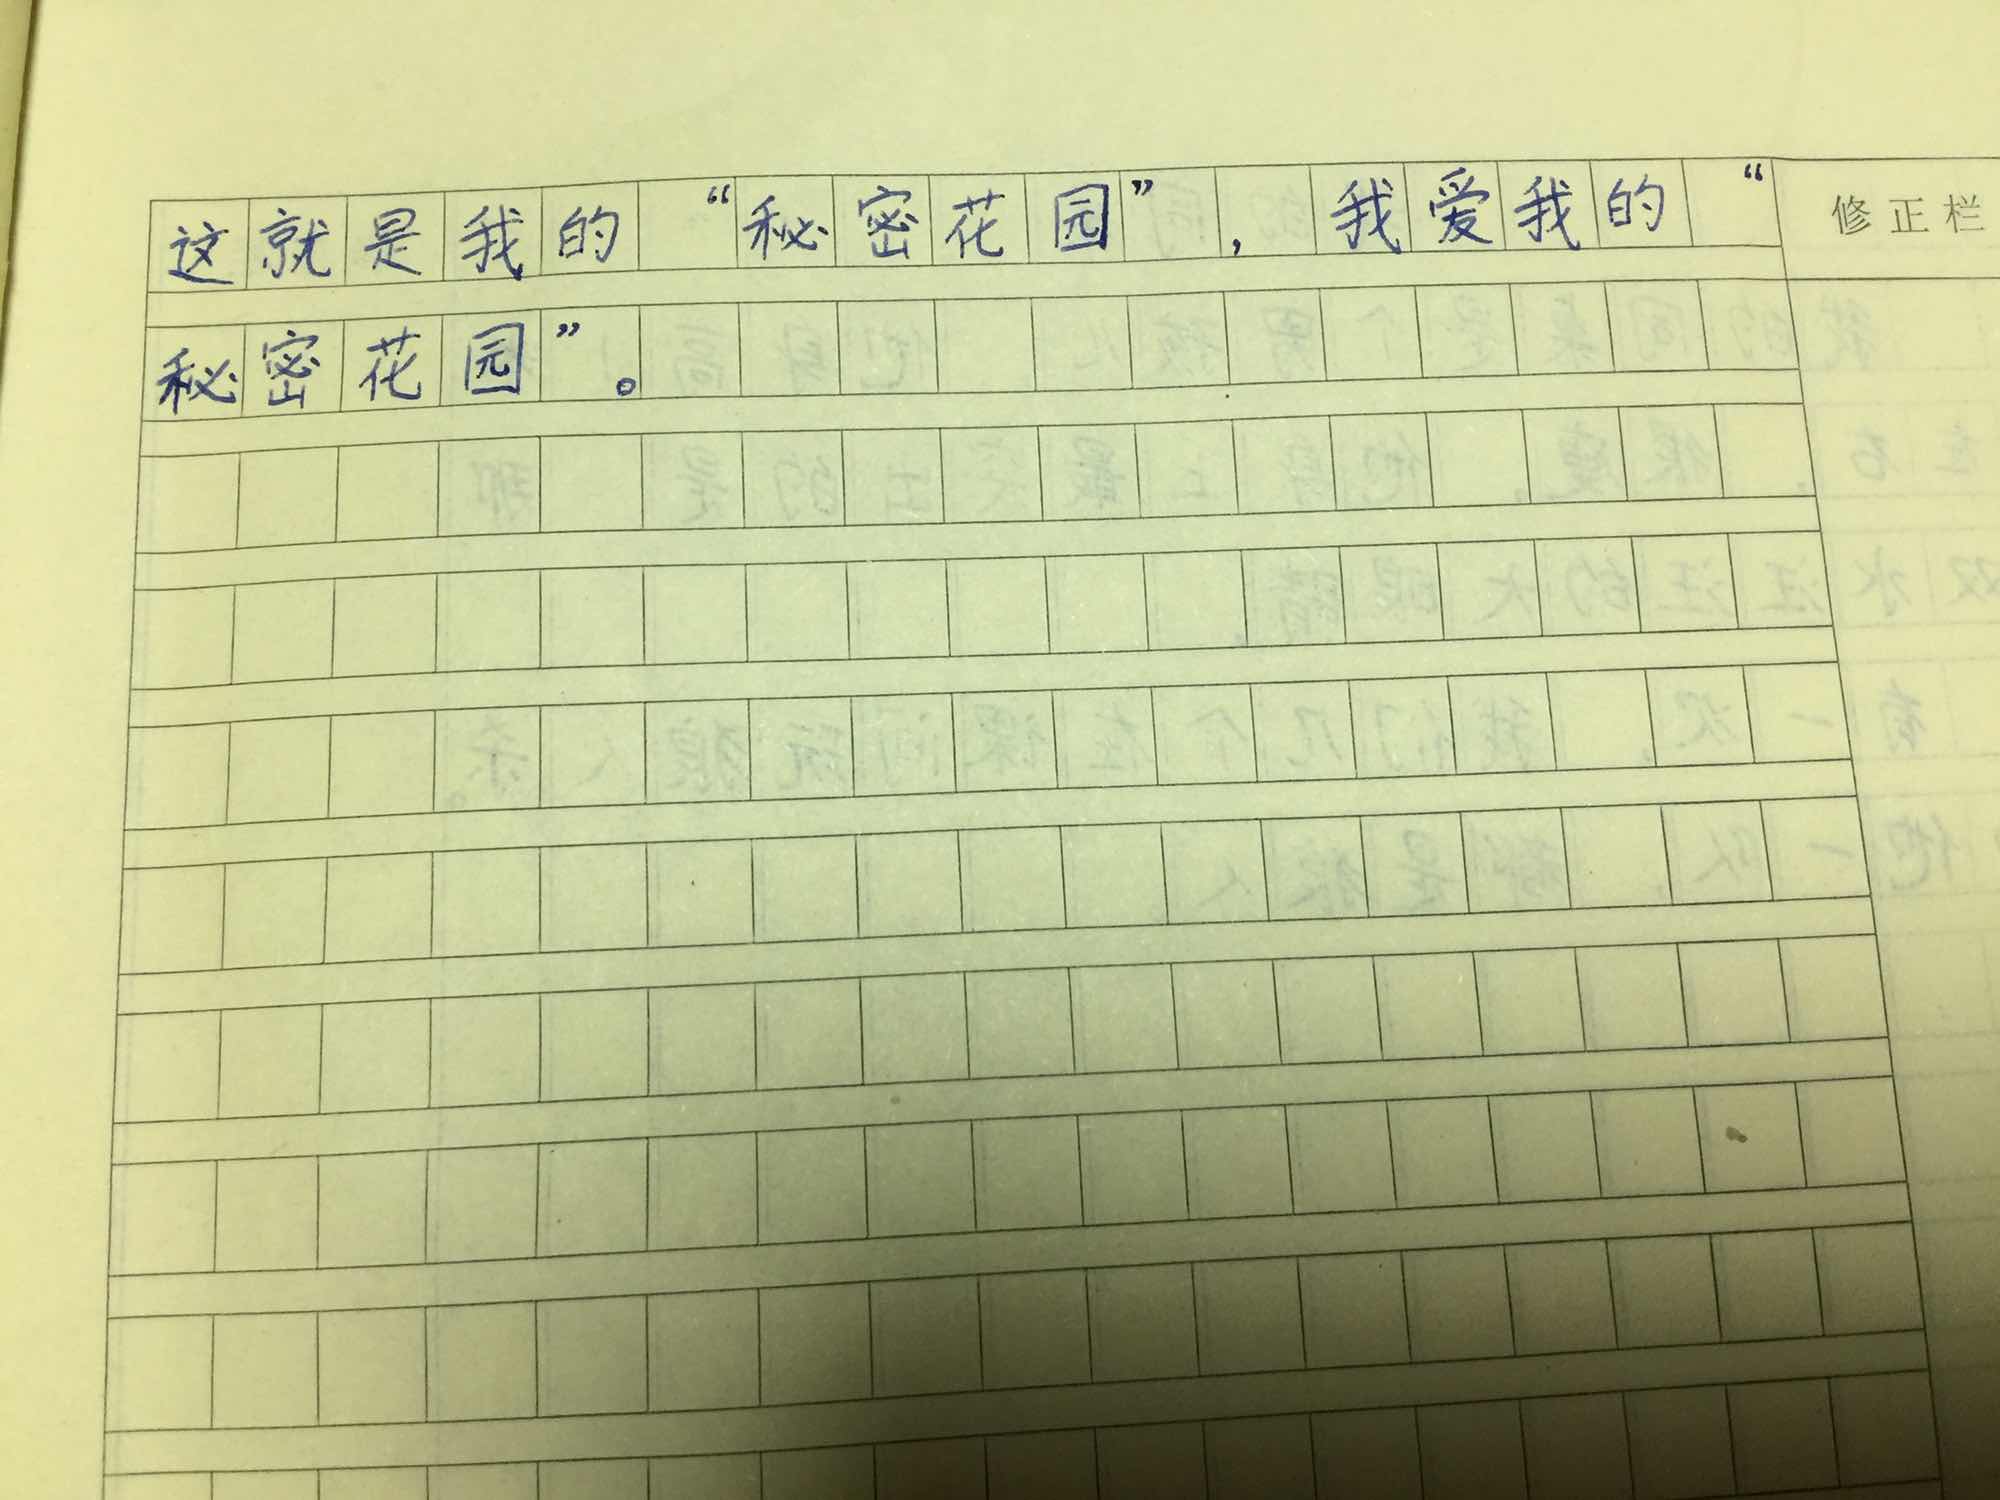 这就是我的“秘密花园”，我爱我的“
修正栏
秘密花园”。